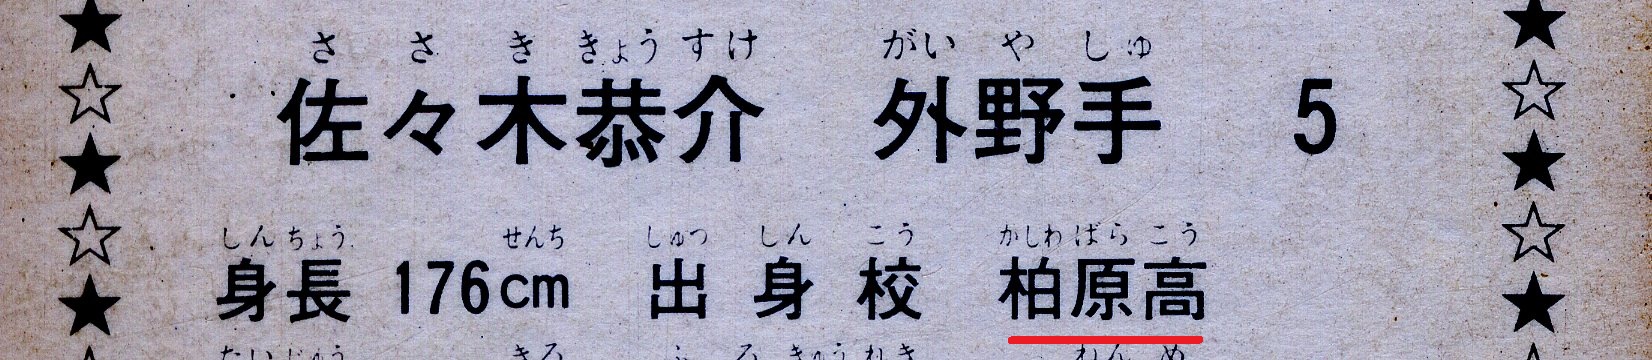 ささききょうすけ がいやしゅ
佐々木恭介 外野手 5
しんちょう せんち しゅつしんこう かしわばらこう
身長 176cm 出身校 柏原高